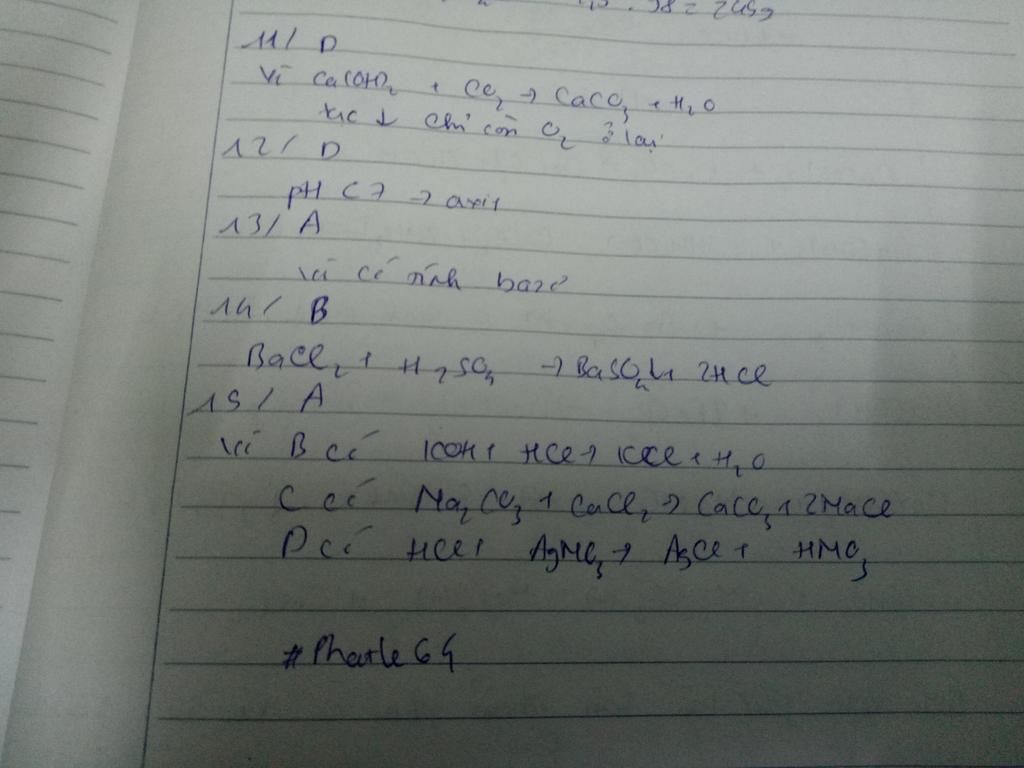 1,5 . 98 = 245g
11/ D
Vì Ca(OH)2 + CO2 → CaCO3 + H2O
↓ chỉ còn O2 ở lại
12/ D
pH < 7 → axit
13/ A
Vì có tính bazơ
14/ B
BaCl2 + H2SO4 → BaSO4↓ + 2HCl
15/ A
Vì B có KOH + HCl → KCl + H2O
C có Na2CO3 + CaCl2 → CaCO3 + 2NaCl
D có HCl + AgNO3 → AgCl + HNO3
#Phatle64